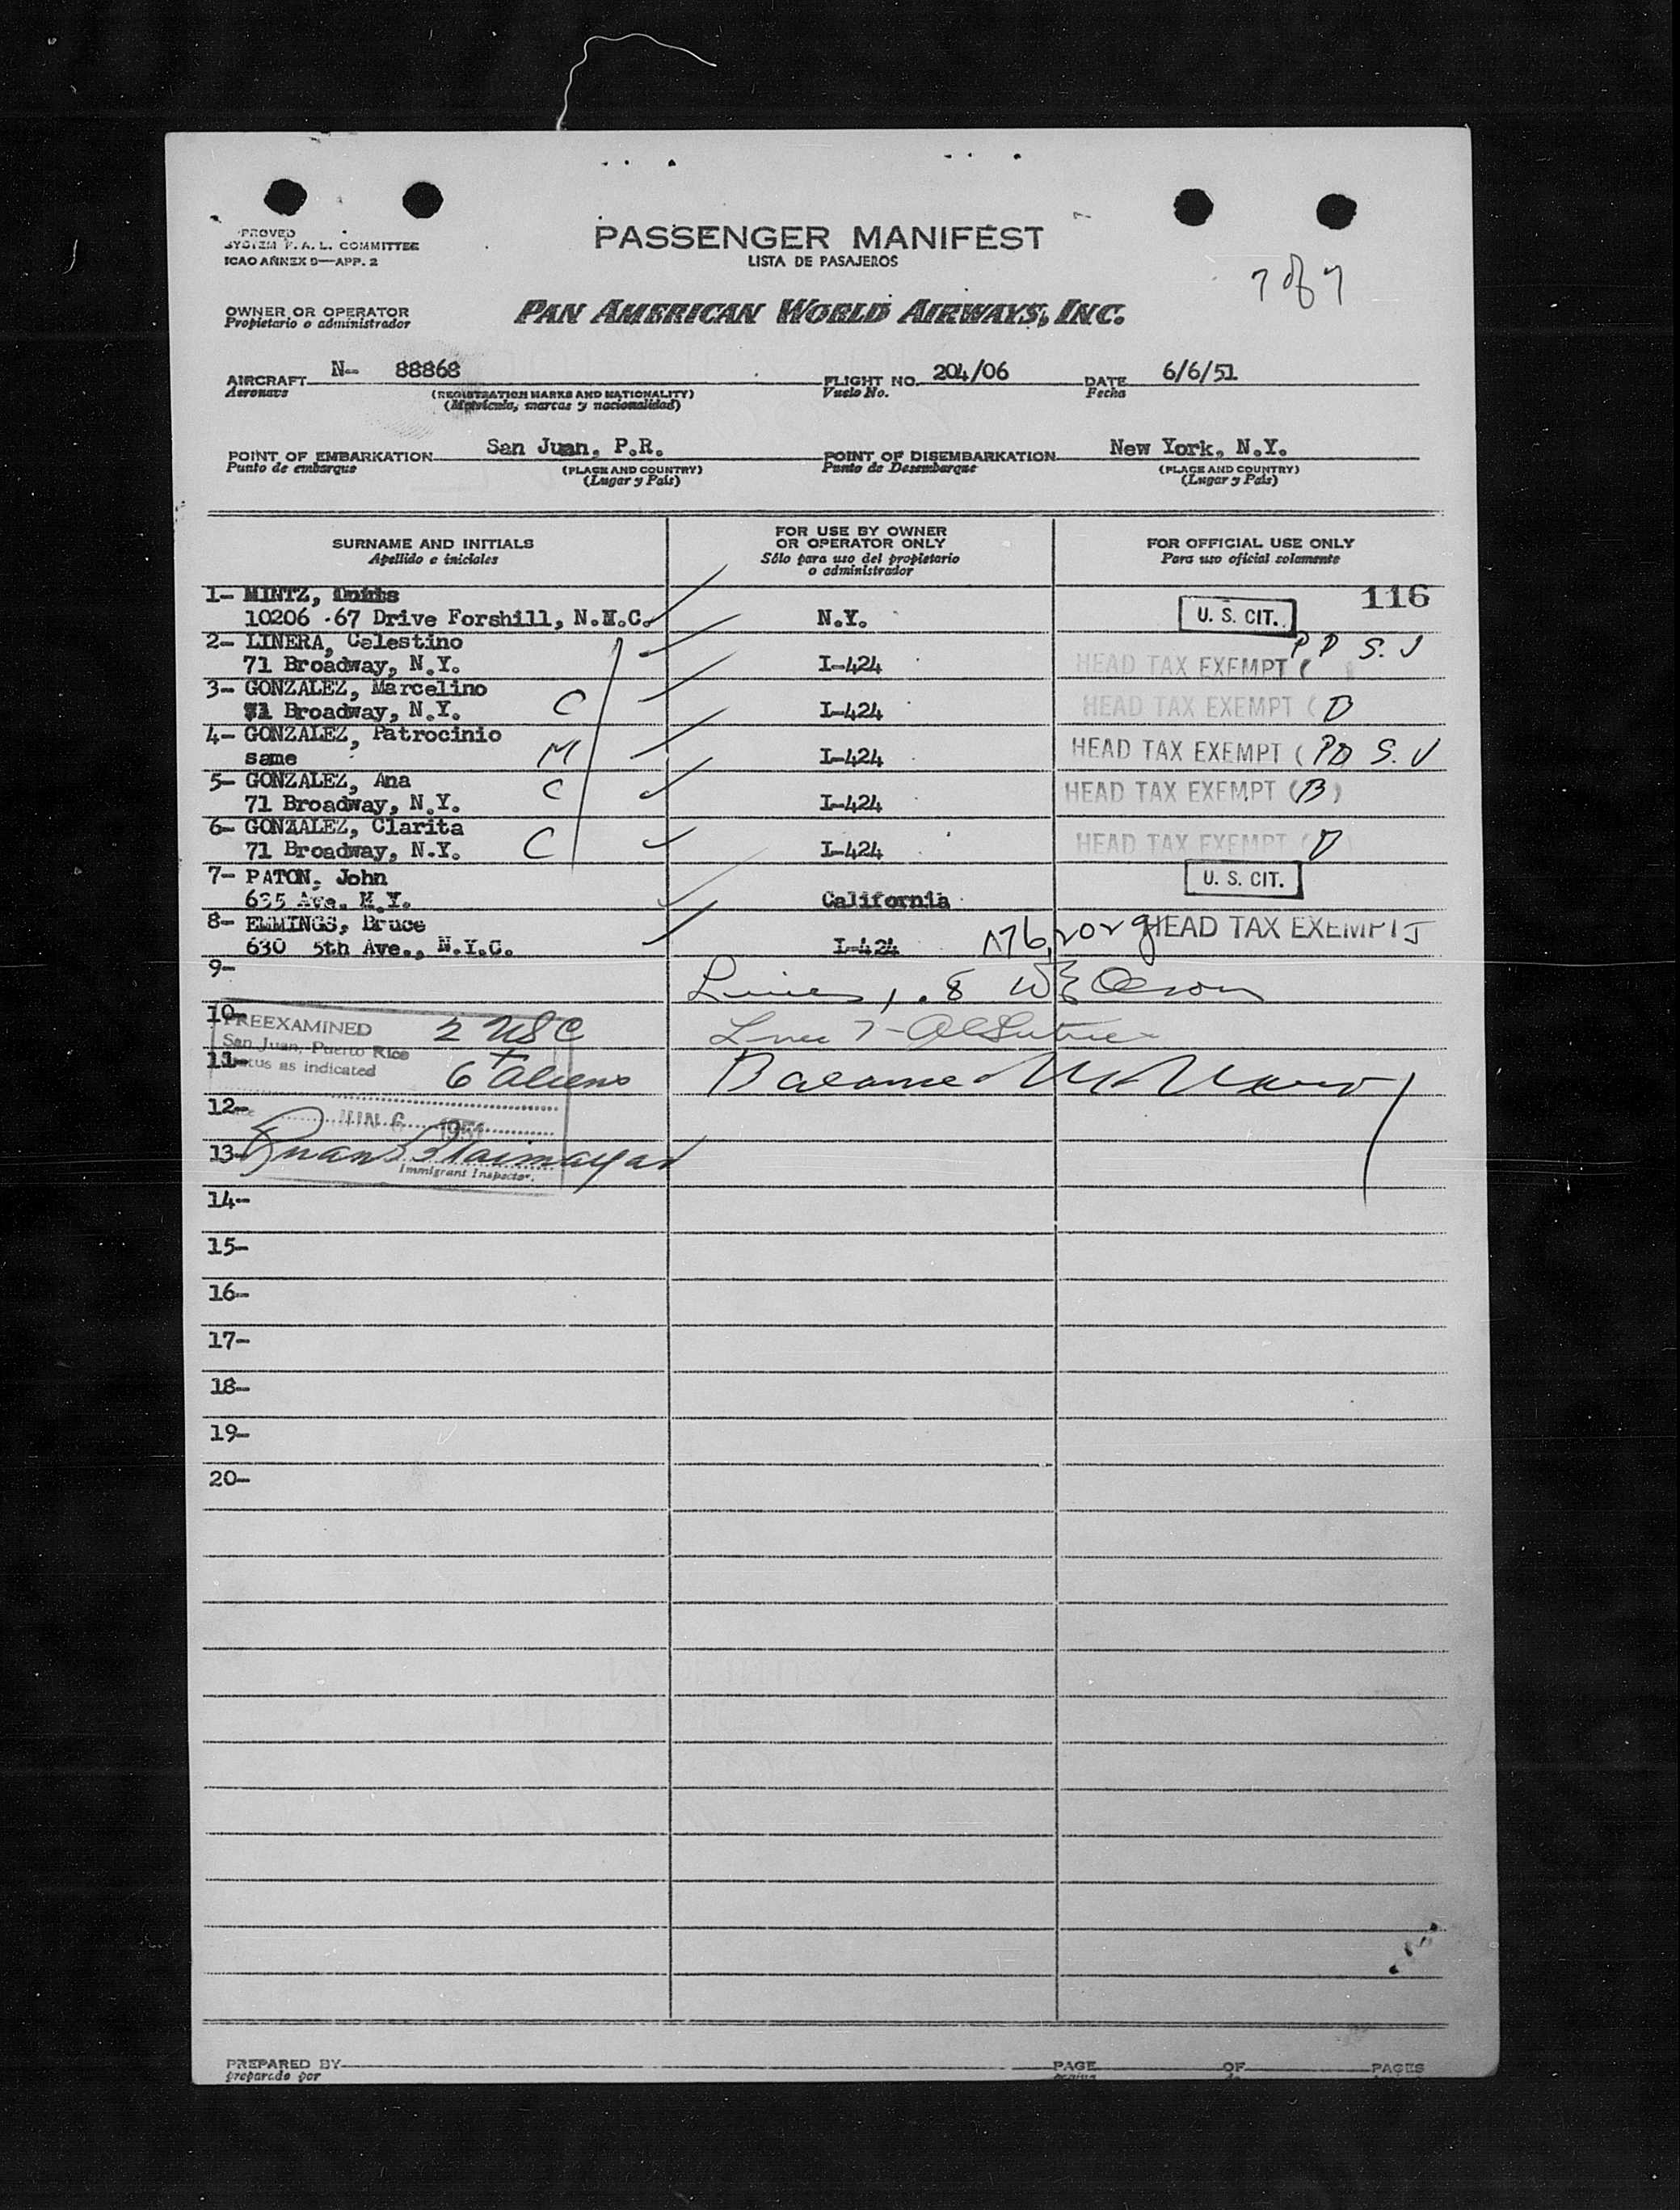 PROVED
SYSTEM F. A. L. COMMITTEE
ICAO ANNEX 9—APP. 2
PASSENGER MANIFEST
LISTA DE PASAJEROS
7 of 7
OWNER OR OPERATOR
Propietario o administrador
PAN AMERICAN WORLD AIRWAYS, INC.
AIRCRAFT N- 88868 FLIGHT NO. 204/06 DATE 6/6/51
Aeronave (REGISTRATION MARKS AND NATIONALITY) Vuelo No. Fecha
(Matrícula, marcas y nacionalidad)
POINT OF EMBARKATION San Juan, P.R. POINT OF DISEMBARKATION New York, N.Y.
Punto de embarque (PLACE AND COUNTRY) Punto de Desembarque (PLACE AND COUNTRY)
(Lugar y País) (Lugar y País)
SURNAME AND INITIALS
Apellido e iniciales
FOR USE BY OWNER
OR OPERATOR ONLY
Sólo para uso del propietario
o administrador
FOR OFFICIAL USE ONLY
Para uso oficial solamente
1- MINTZ, 116
10206 -67 Drive Forshill, N.Y.C. N.Y. U. S. CIT.
2- LINERA, Celestino PD S.J
71 Broadway, N.Y. I-424 HEAD TAX EXEMPT (
3- GONZALEZ, Marcelino
71 Broadway, N.Y. C I-424 HEAD TAX EXEMPT (D
4- GONZALEZ, Patrocinio
same M I-424 HEAD TAX EXEMPT (PD S.J
5- GONZALEZ, Ana
71 Broadway, N.Y. C I-424 HEAD TAX EXEMPT (B)
6- GONZALEZ, Clarita
71 Broadway, N.Y. C I-424 HEAD TAX EXEMPT (D
7- PATON, John U. S. CIT.
635 Ave. N.Y. California
8- EMMINGS, Bruce HEAD TAX EXEMPT
630 5th Ave., N.Y.C. I-424
9-
10- PREEXAMINED 2 USC
San Juan, Puerto Rico +
11- Status as indicated 6 Aliens
12- JUN 6 1951
13-
Immigrant Inspector.
14-
15-
16-
17-
18-
19-
20-
PREPARED BY PAGE OF PAGES
preparado por